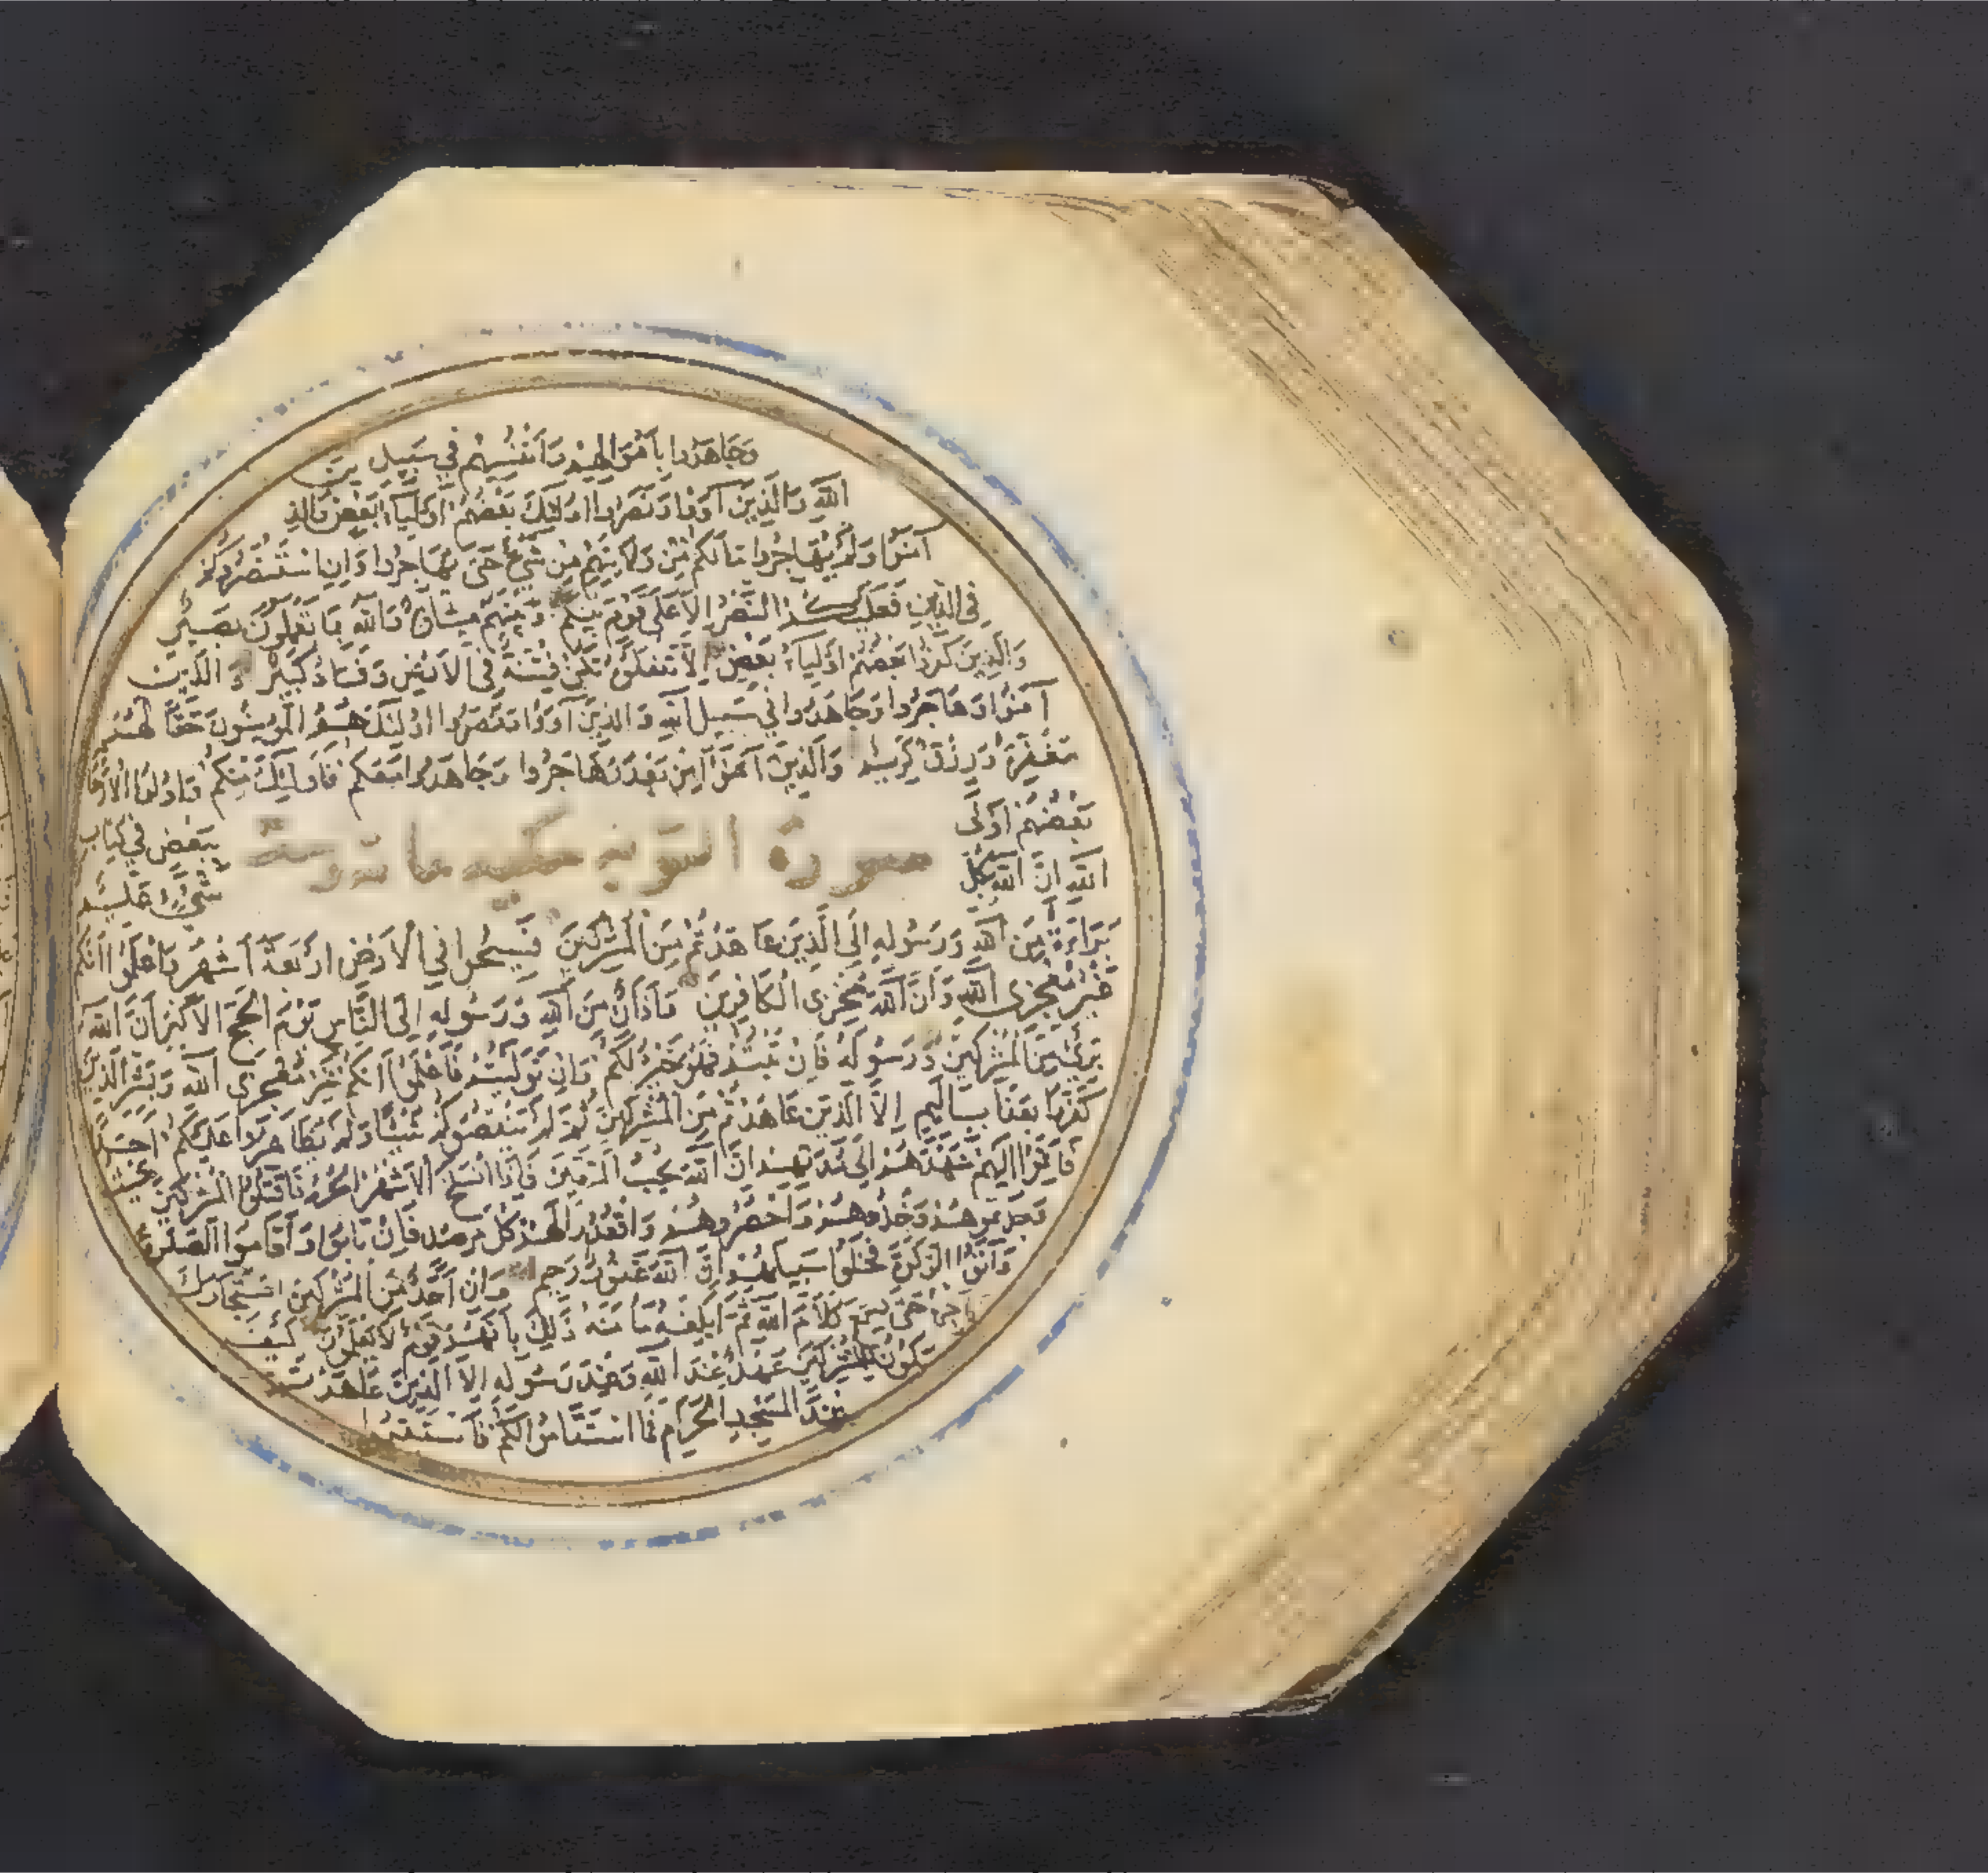 وَجَاهَدُوا بِأَمْوَالِهِمْ وَأَنْفُسِهِمْ فِي سَبِيلِ
اللَّهِ وَالَّذِينَ آوَوْا وَنَصَرُوا أُولَئِكَ بَعْضُهُمْ أَوْلِيَاءُ بَعْضٍ وَالَّذِينَ
آمَنُوا وَلَمْ يُهَاجِرُوا مَا لَكُمْ مِنْ وَلَايَتِهِمْ مِنْ شَيْءٍ حَتَّى يُهَاجِرُوا وَإِنِ اسْتَنْصَرُوكُمْ
فِي الدِّينِ فَعَلَيْكُمُ النَّصْرُ إِلَّا عَلَى قَوْمٍ بَيْنَكُمْ وَبَيْنَهُمْ مِيثَاقٌ وَاللَّهُ بِمَا تَعْمَلُونَ بَصِيرٌ
وَالَّذِينَ كَفَرُوا بَعْضُهُمْ أَوْلِيَاءُ بَعْضٍ إِلَّا تَفْعَلُوهُ تَكُنْ فِتْنَةٌ فِي الْأَرْضِ وَفَسَادٌ كَبِيرٌ وَالَّذِينَ
آمَنُوا وَهَاجَرُوا وَجَاهَدُوا فِي سَبِيلِ اللَّهِ وَالَّذِينَ آوَوْا وَنَصَرُوا أُولَئِكَ هُمُ الْمُؤْمِنُونَ حَقًّا لَهُمْ
مَغْفِرَةٌ وَرِزْقٌ كَرِيمٌ وَالَّذِينَ آمَنُوا مِنْ بَعْدُ وَهَاجَرُوا وَجَاهَدُوا مَعَكُمْ فَأُولَئِكَ مِنْكُمْ وَأُولُوا الْأَرْحَامِ
بَعْضُهُمْ أَوْلَى بِبَعْضٍ فِي كِتَابِ
سورة التوبة
اللَّهِ إِنَّ اللَّهَ بِكُلِّ شَيْءٍ عَلِيمٌ
بَرَاءَةٌ مِنَ اللَّهِ وَرَسُولِهِ إِلَى الَّذِينَ عَاهَدْتُمْ مِنَ الْمُشْرِكِينَ فَسِيحُوا فِي الْأَرْضِ أَرْبَعَةَ أَشْهُرٍ وَاعْلَمُوا أَنَّكُمْ
غَيْرُ مُعْجِزِي اللَّهِ وَأَنَّ اللَّهَ مُخْزِي الْكَافِرِينَ وَأَذَانٌ مِنَ اللَّهِ وَرَسُولِهِ إِلَى النَّاسِ يَوْمَ الْحَجِّ الْأَكْبَرِ أَنَّ اللَّهَ
بَرِيءٌ مِنَ الْمُشْرِكِينَ وَرَسُولُهُ فَإِنْ تُبْتُمْ فَهُوَ خَيْرٌ لَكُمْ وَإِنْ تَوَلَّيْتُمْ فَاعْلَمُوا أَنَّكُمْ غَيْرُ مُعْجِزِي اللَّهِ وَبَشِّرِ الَّذِينَ
كَفَرُوا بِعَذَابٍ أَلِيمٍ إِلَّا الَّذِينَ عَاهَدْتُمْ مِنَ الْمُشْرِكِينَ ثُمَّ لَمْ يَنْقُصُوكُمْ شَيْئًا وَلَمْ يُظَاهِرُوا عَلَيْكُمْ أَحَدًا
فَأَتِمُّوا إِلَيْهِمْ عَهْدَهُمْ إِلَى مُدَّتِهِمْ إِنَّ اللَّهَ يُحِبُّ الْمُتَّقِينَ فَإِذَا انْسَلَخَ الْأَشْهُرُ الْحُرُمُ فَاقْتُلُوا الْمُشْرِكِينَ حَيْثُ
وَجَدْتُمُوهُمْ وَخُذُوهُمْ وَاحْصُرُوهُمْ وَاقْعُدُوا لَهُمْ كُلَّ مَرْصَدٍ فَإِنْ تَابُوا وَأَقَامُوا الصَّلَوةَ
وَآتَوُا الزَّكَوةَ فَخَلُّوا سَبِيلَهُمْ إِنَّ اللَّهَ غَفُورٌ رَحِيمٌ وَإِنْ أَحَدٌ مِنَ الْمُشْرِكِينَ اسْتَجَارَكَ
حَتَّى يَسْمَعَ كَلَامَ اللَّهِ ثُمَّ أَبْلِغْهُ مَأْمَنَهُ ذَلِكَ بِأَنَّهُمْ قَوْمٌ لَا يَعْلَمُونَ كَيْفَ
يَكُونُ لِلْمُشْرِكِينَ عَهْدٌ عِنْدَ اللَّهِ وَعِنْدَ رَسُولِهِ إِلَّا الَّذِينَ عَاهَدْتُمْ
عِنْدَ الْمَسْجِدِ الْحَرَامِ فَمَا اسْتَقَامُوا لَكُمْ فَاسْتَقِيمُوا